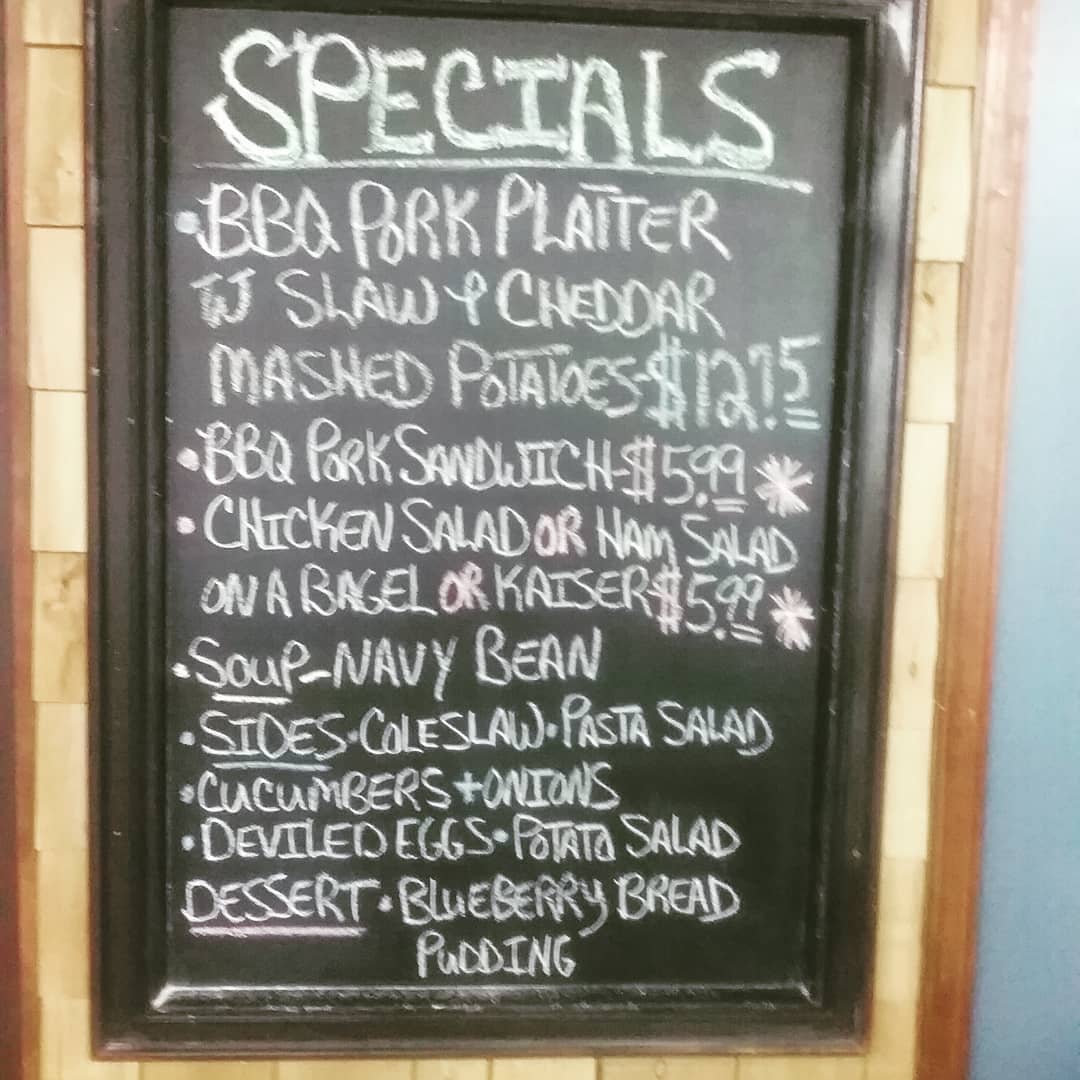 SPECIALS
•BBQ PORK PLATTER
W SLAW & CHEDDAR
MASHED POTATOES-$12.75
•BBQ PORK SANDWICH-$5.99 *
•CHICKEN SALAD OR HAM SALAD
ON A BAGEL OR KAISER $5.99 *
•SOUP-NAVY BEAN
•SIDES•COLESLAW•PASTA SALAD
•CUCUMBERS+ONIONS
•DEVILED EGGS•POTATO SALAD
DESSERT•BLUEBERRY BREAD
PUDDING